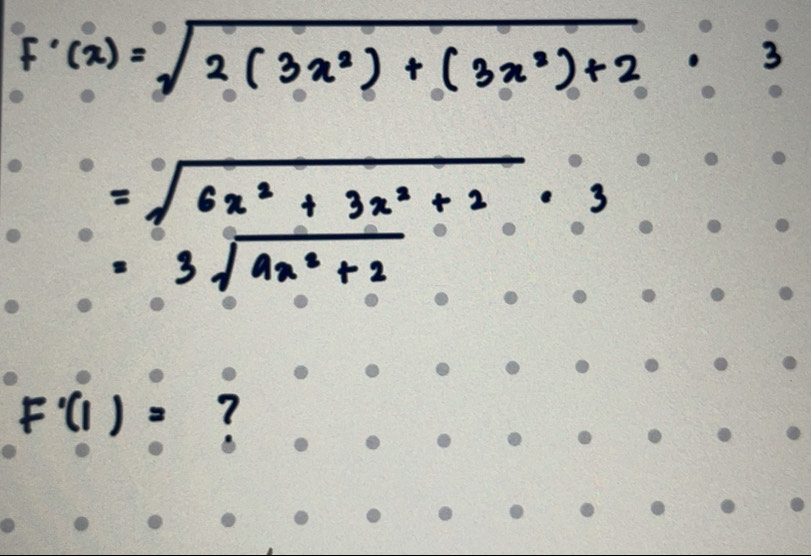 F'(x) = √(2(3x²) + (3x²) + 2) · 3
= √(6x² + 3x² + 2) · 3
= 3√(9x² + 2)
F'(1) = ?